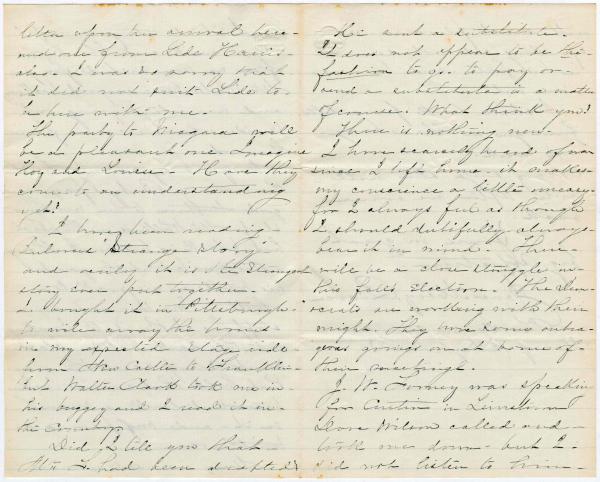 letter upon her arrival here-
and one from Lide Harris-
also. I was so sorry that
it did not suit Lide to-
be here with me.
The party to Niagara will
be a pleasant one I imagine
Hoy and Louise - Have they
come to an understanding
yet?
I have been reading
Bulwers "Strange Story"
and verily it is the Strangest
story ever put together-
I bought it in Pittsburgh-
to wile away the
in my expected stage ride
from New Castle to Franklin-
but Walter Clark took me in
his buggy and I read it in-
the
Did I tell you that-
Mr had been drafted
He sent a substitute.
It does not appear to be the-
fashion to go- to pay or-
send a substitute is a matter
of course. What think you?
There is nothing new.
I have scarcely heard of war
since I left home it makes-
my conscience a little uneasy-
for I always feel as though
I should dutifully always-
bear it in mind - There-
will be a close struggle in-
this falls election. The Dem-
ocrats are working with their
might. They have some outra-
geous goings on at some of-
their meetings.
J. W. Forney was speaking
for Curtin in
Dave Wilson called and-
took me down- but I-
did not listen to him-